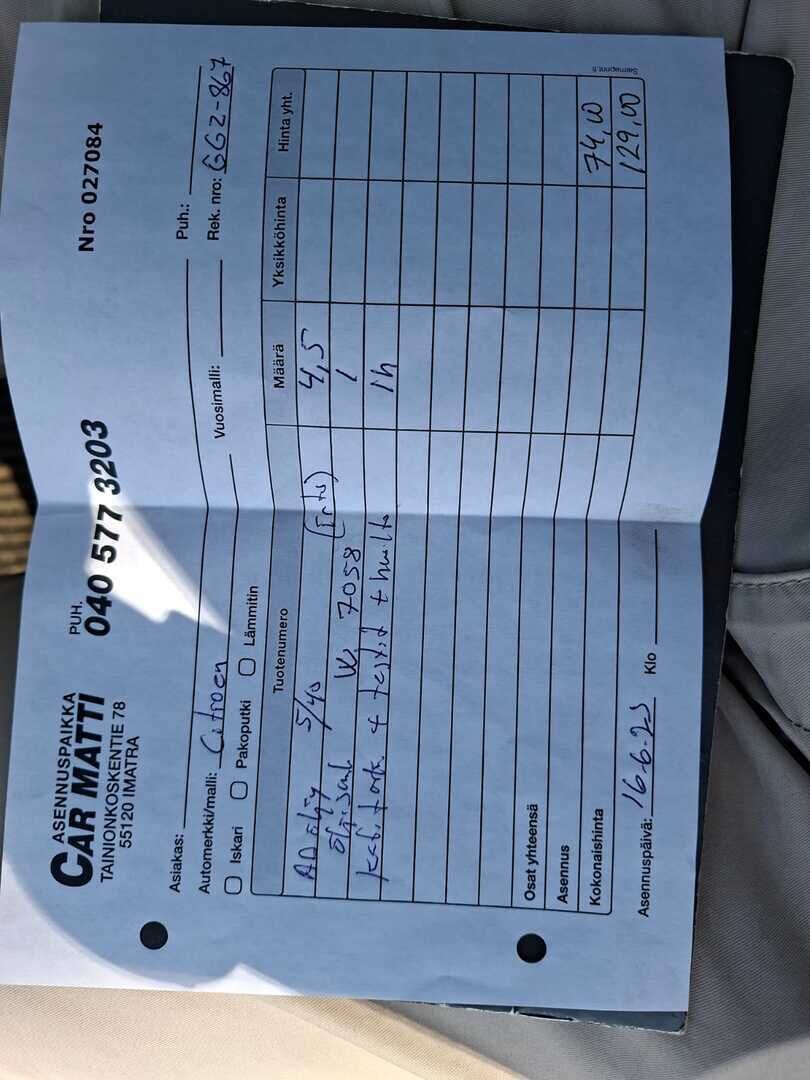 ASENNUSPAIKKA
CAR MATTI
TAINIONKOSKENTIE 78
55120 IMATRA
PUH.
040 577 3203
Nro 027084
Asiakas: Puh.:
Automerkki/malli: Citroen Vuosimalli: Rek. nro: GGZ-867
Iskari Pakoputki Lämmitin
Tuotenumero Määrä Yksikköhinta Hinta yht.
AD öljy 5/40 4,5
W 7058 1
+ testit + huolto 1h
Osat yhteensä
Asennus 74,00
Kokonaishinta 129,00
Asennuspäivä: 16.6.23 Klo
Saimaprint.fi